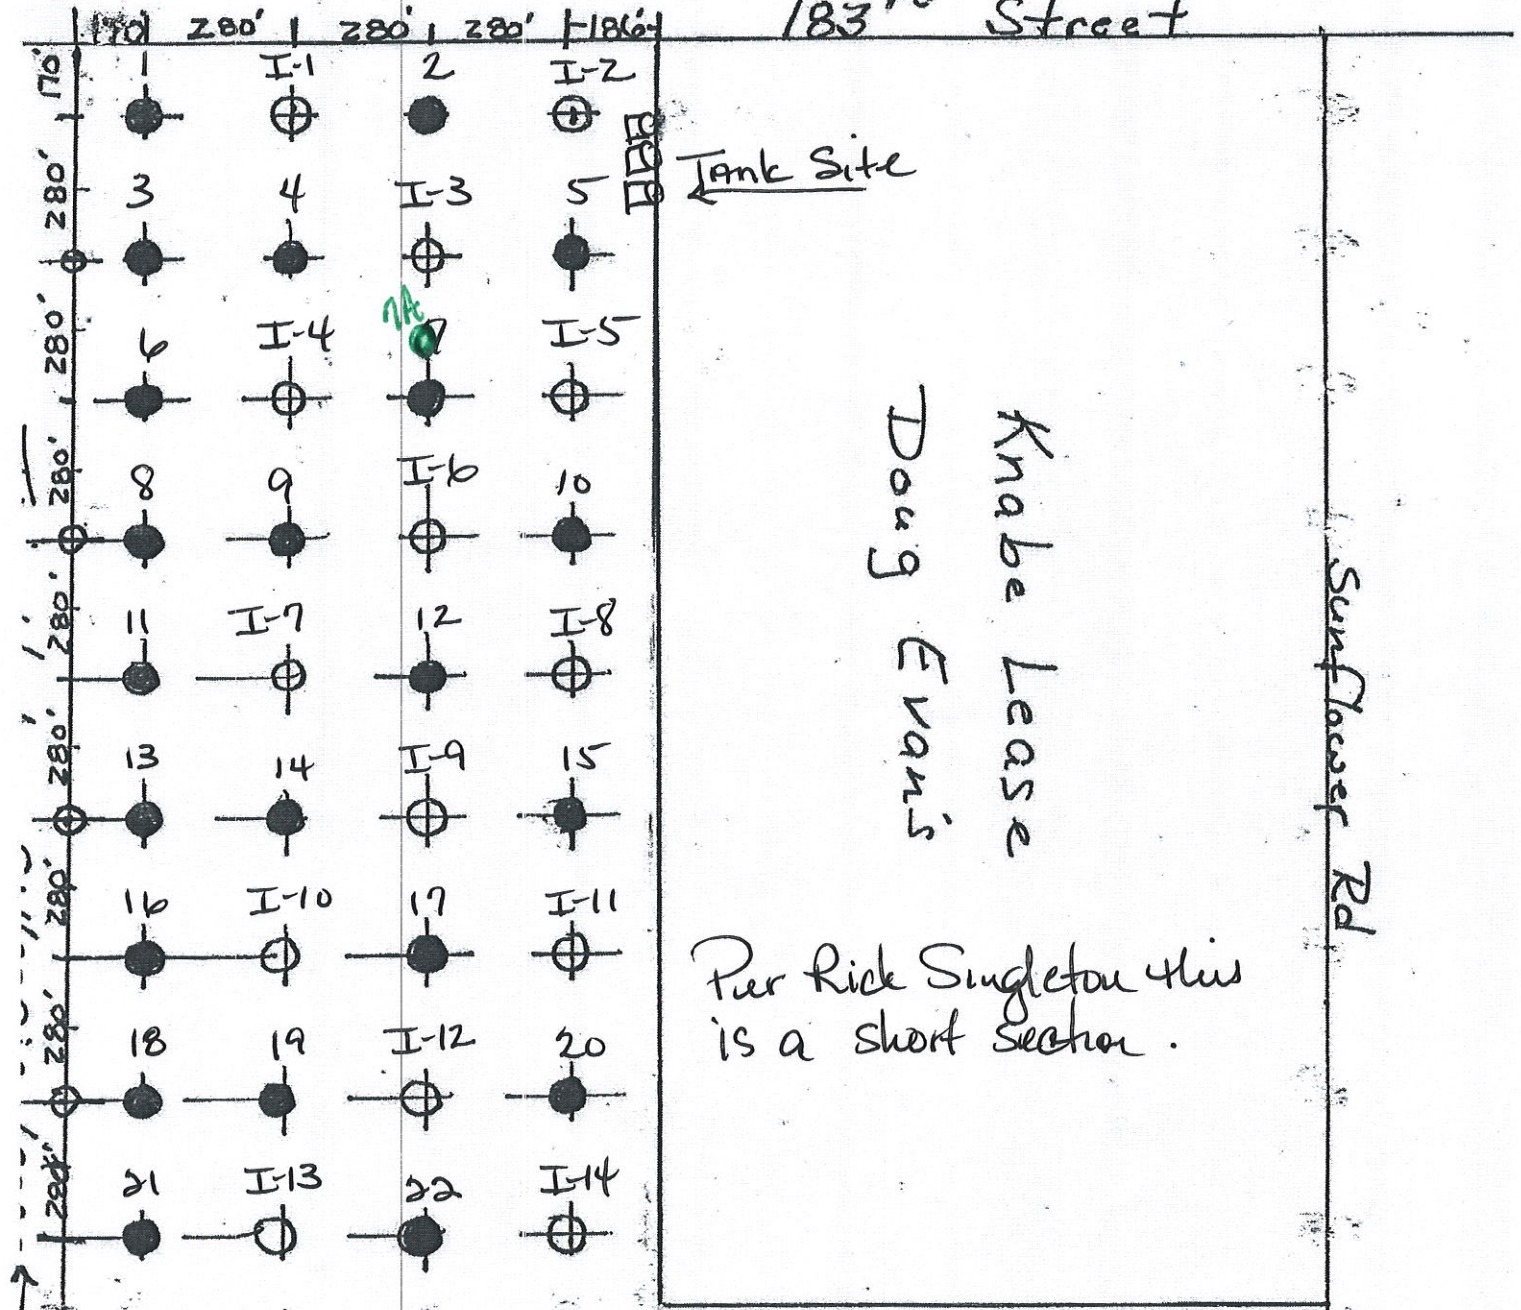 183rd Street
170' 280' 280' 280' 186'
170'
1 I-1 2 I-2
Tank Site
280'
3 4 I-3 5
7A
280'
6 I-4 7 I-5
280'
8 9 I-6 10
280'
11 I-7 12 I-8
280'
13 14 I-9 15
280'
16 I-10 17 I-11
280'
18 19 I-12 20
280'
21 I-13 22 I-14
Knabe Lease
Doug Evan's
Sunflower Rd
Per Rick Singleton this
is a short section.